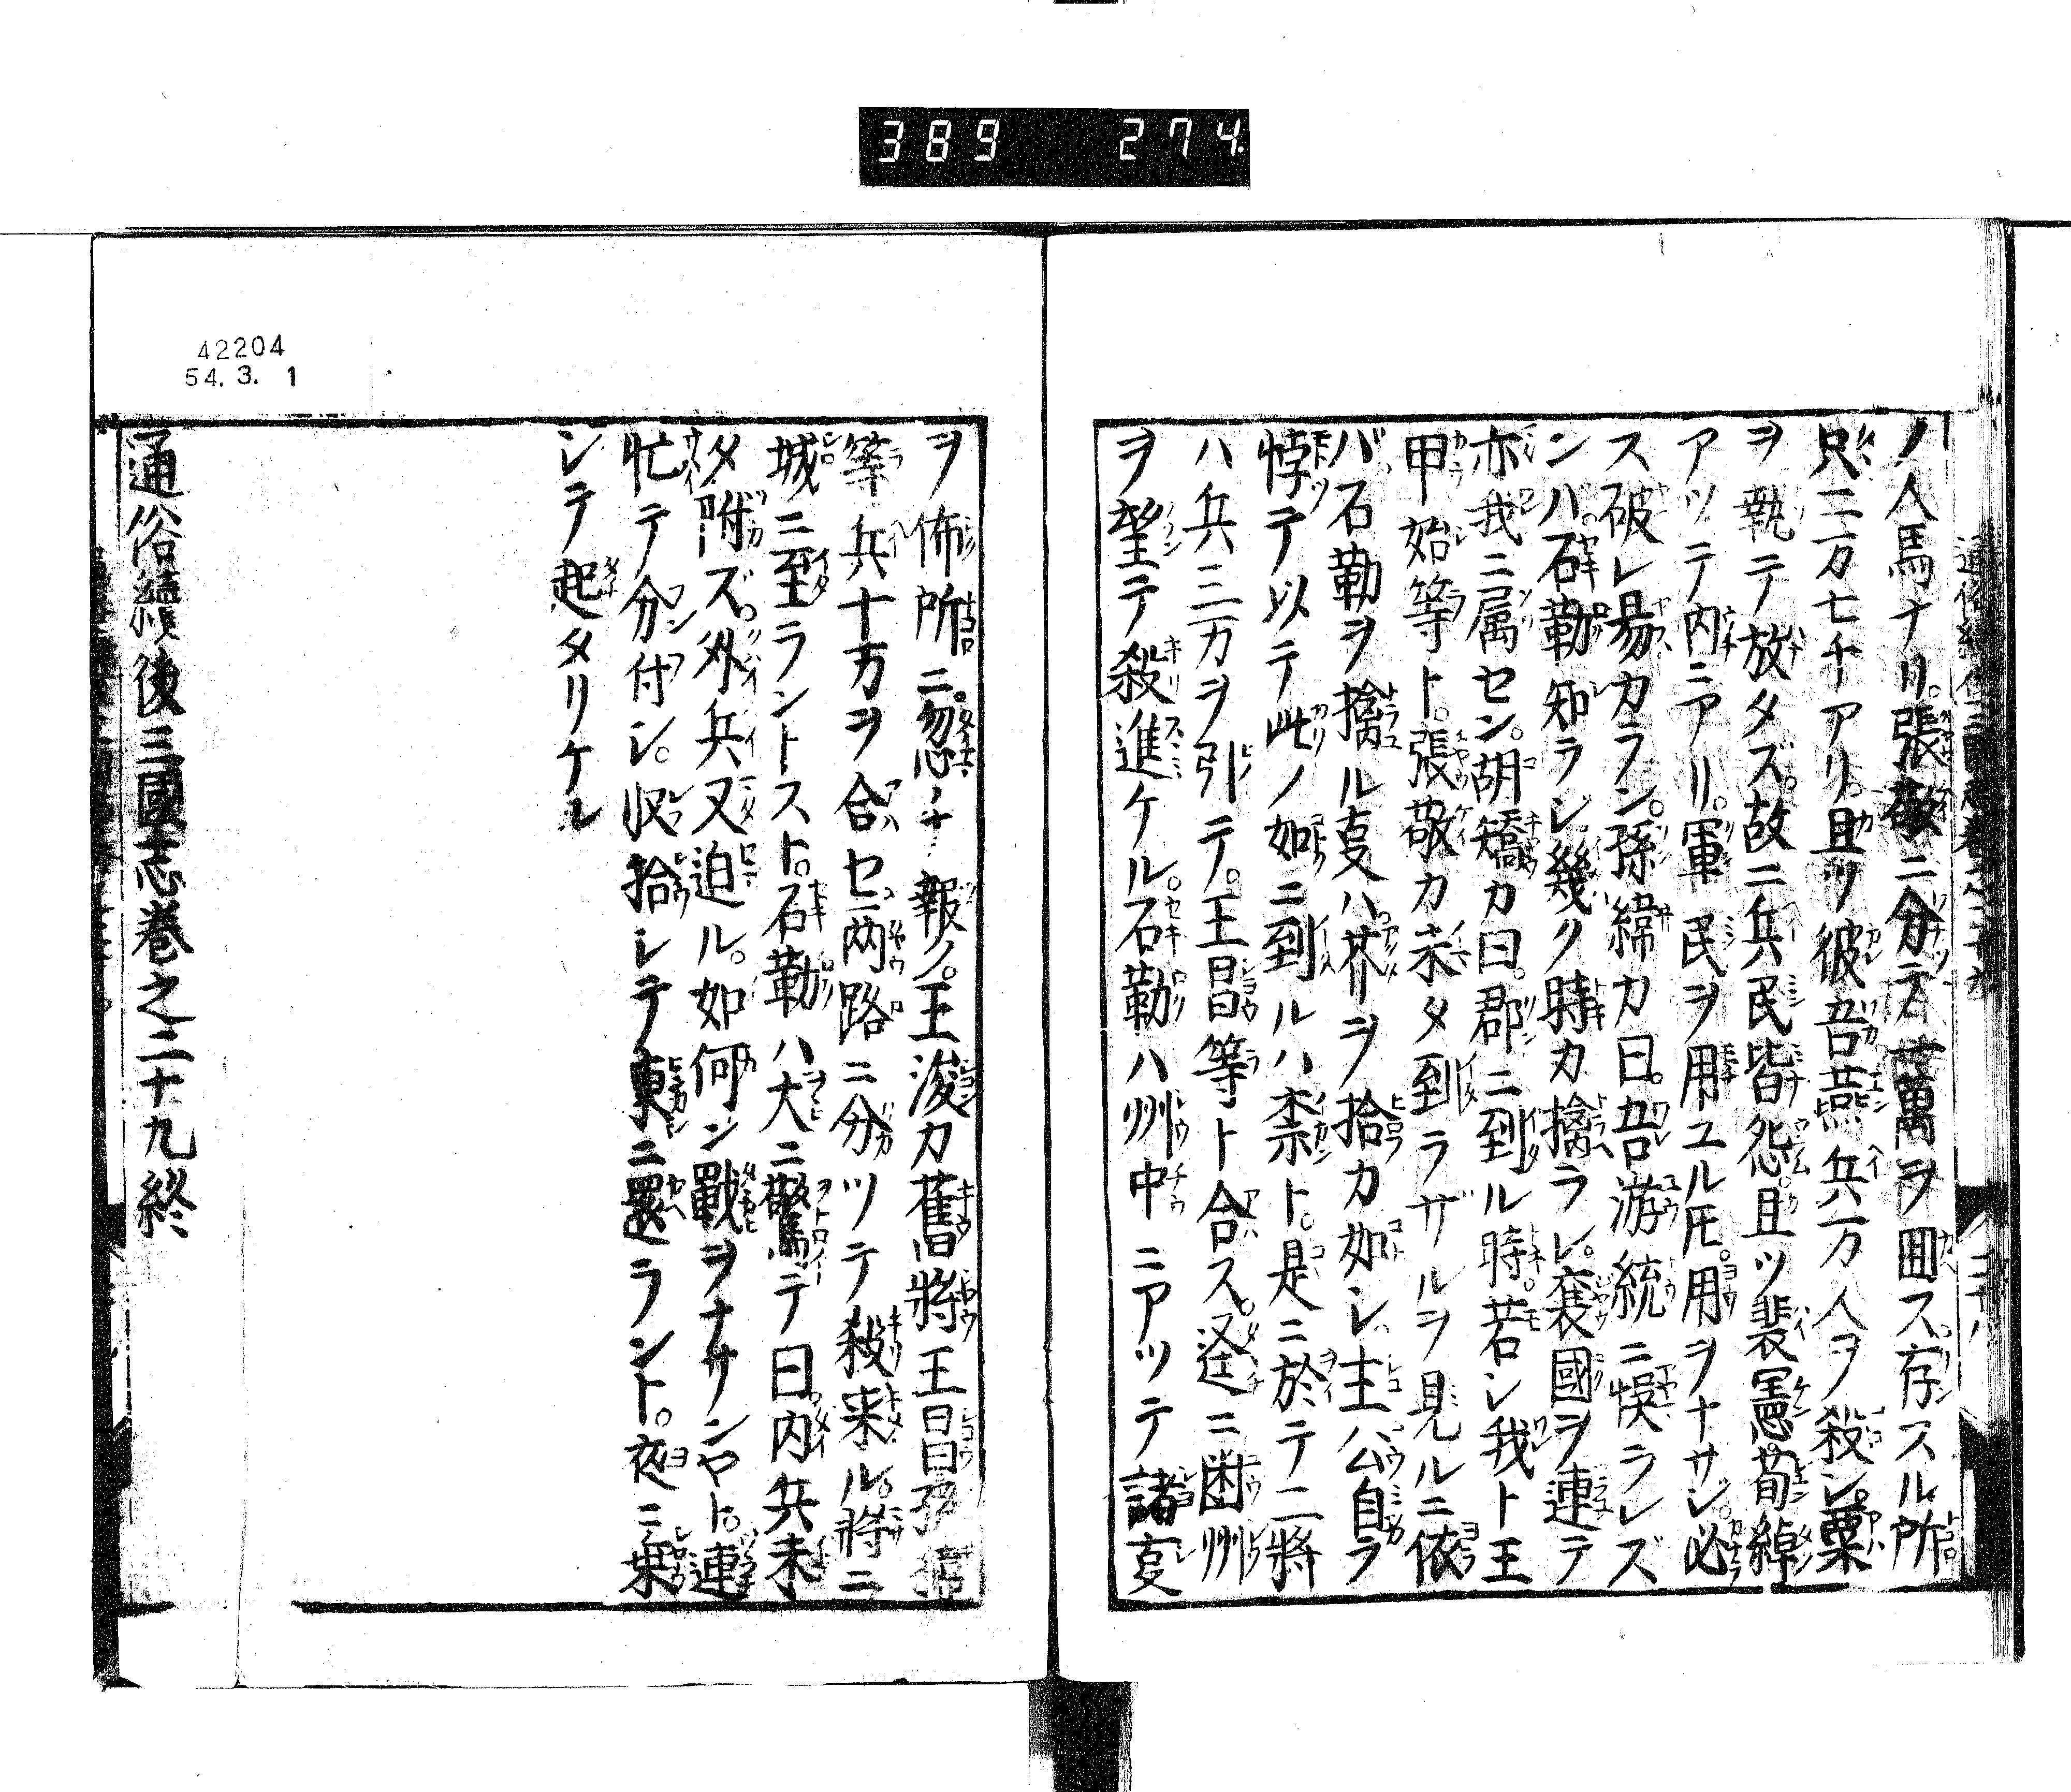 389 274
ノ人馬ナリ。張敬ニ分テ二萬ヲ囲ス存スル所
只二万七千アリ。且ツ彼吾燕兵一万人ヲ殺シ。粟
ヲ執テ放タズ。故ニ兵民皆怨。且ツ裴憲荀綽
アツテ内ニアリ。軍民ヲ用ユル𪜈。用ヲナサジ。必
ス破レ易カラン。孫緯カ曰。吾游統ニ悞ラレズ
ンハ。石勒知ラジ幾ク時カ擒ラレ。襄國ヲ連テ
亦我ニ属セン。胡矯カ曰。郡ニ到ル時。若シ我ト王
甲始等ト。張敬カ未タ到ラザルヲ見ルニ依
バ石勒ヲ擒ル叓ハ。芥ヲ拾カ如シ。主公自ラ
悖テ以テ此ノ如ニ到ルハ柰ト。是ニ於テ二將
ハ兵三万ヲ引テ。王昌等ト合ス。逕ニ幽州
ヲ望テ殺進ケル。石勒ハ州中ニアツテ諸叓
ヲ佈所ニ。忽チ報ノ。王浚カ舊將王昌
等兵十万ヲ合セ両路ニ分ツテ殺来ル。將ニ
城ニ至ラントスト。石勒ハ大ニ驚テ曰。内兵未
タ附ズ。外兵又迫ル。如何ン戰ヲナサンヤト。連
忙テ分付シ。収拾シテ東ニ還ラント。夜ニ乗
シテ起タリケル
通俗續後三國志巻之二十九終
42204
54.3.1